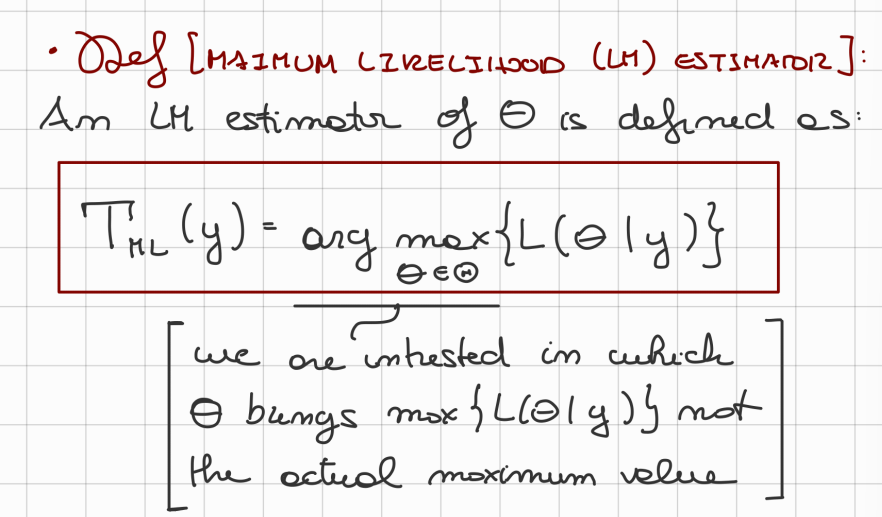 • Def [MAIMUM LIKELIHOOD (LM) ESTIMATOR]:
An LM estimator of Θ is defined as:
T_ML (y) = arg max {L(Θ | y)}
Θ ∈ Ⓗ
we are intrested in which
Θ brings max {L(Θ | y)} not
the actual maximum value